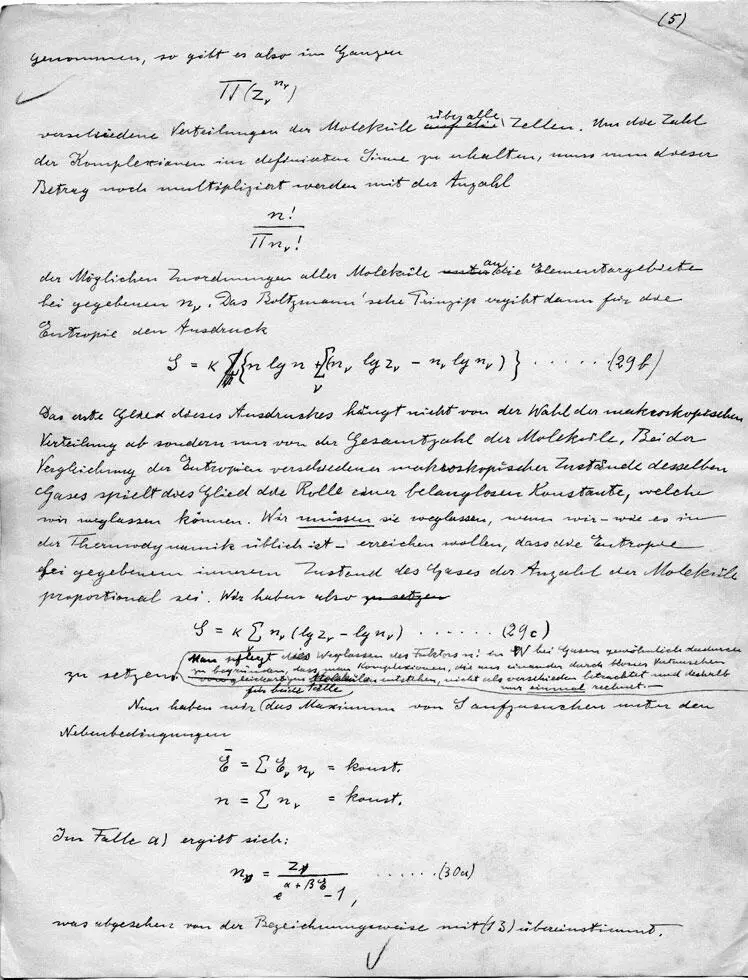 (5)
genommen, so gibt es also im Ganzen
Π(z_ν^{n_ν})
verschiedene Verteilungen der Moleküle über alle Zellen. Um die Zahl
der Komplexionen im definierten Sinne zu erhalten, muss nun dieser
Betrag noch multipliziert werden mit der Anzahl
n! / Πn_ν!
der Möglichen Zuordnungen aller Moleküle an die Elementargebiete
bei gegebenen n_ν. Das Boltzmann'sche Prinzip ergibt dann für die
Entropie den Ausdruck
S = κ {n lg n + Σ_ν (n_ν lg z_ν − n_ν lg n_ν)} ······ (29b)
Das erste Glied dieses Ausdruckes hängt nicht von der Wahl der makroskopischen
Verteilung ab sondern nur von der Gesamtzahl der Moleküle. Bei der
Vergleichung der Entropien verschiedener makroskopischer Zustände desselben
Gases spielt dies Glied die Rolle einer belanglosen Konstante, welche
wir weglassen können. Wir müssen sie weglassen, wenn wir – wie es in
der Thermodynamik üblich ist – erreichen wollen, dass die Entropie
bei gegebenem innerem Zustand des Gases der Anzahl der Moleküle
proportional sei. Wir haben also zu setzen
S = κ Σ n_ν (lg z_ν − lg n_ν) ······ (29c)
zu setzen. Man pflegt dies Weglassen des Faktors n! in W bei Gasen gewöhnlich dadurch
zu begründen, dass man Komplexionen, die aus einander durch blosses Vertauschen
von gleichartigen Molekülen entstehen, nicht als verschieden betrachtet und deshalb
nur einmal rechnet.
für beide Fälle
Nun haben wir das Maximum von S aufzusuchen unter den
Nebenbedingungen
Ē = Σ E_ν n_ν = konst.
n = Σ n_ν = konst.
Im Falle a) ergibt sich:
n_ν = z_ν / (e^{α + βE} − 1), ······ (30a)
was abgesehen von der Bezeichnungsweise mit (13) übereinstimmt.